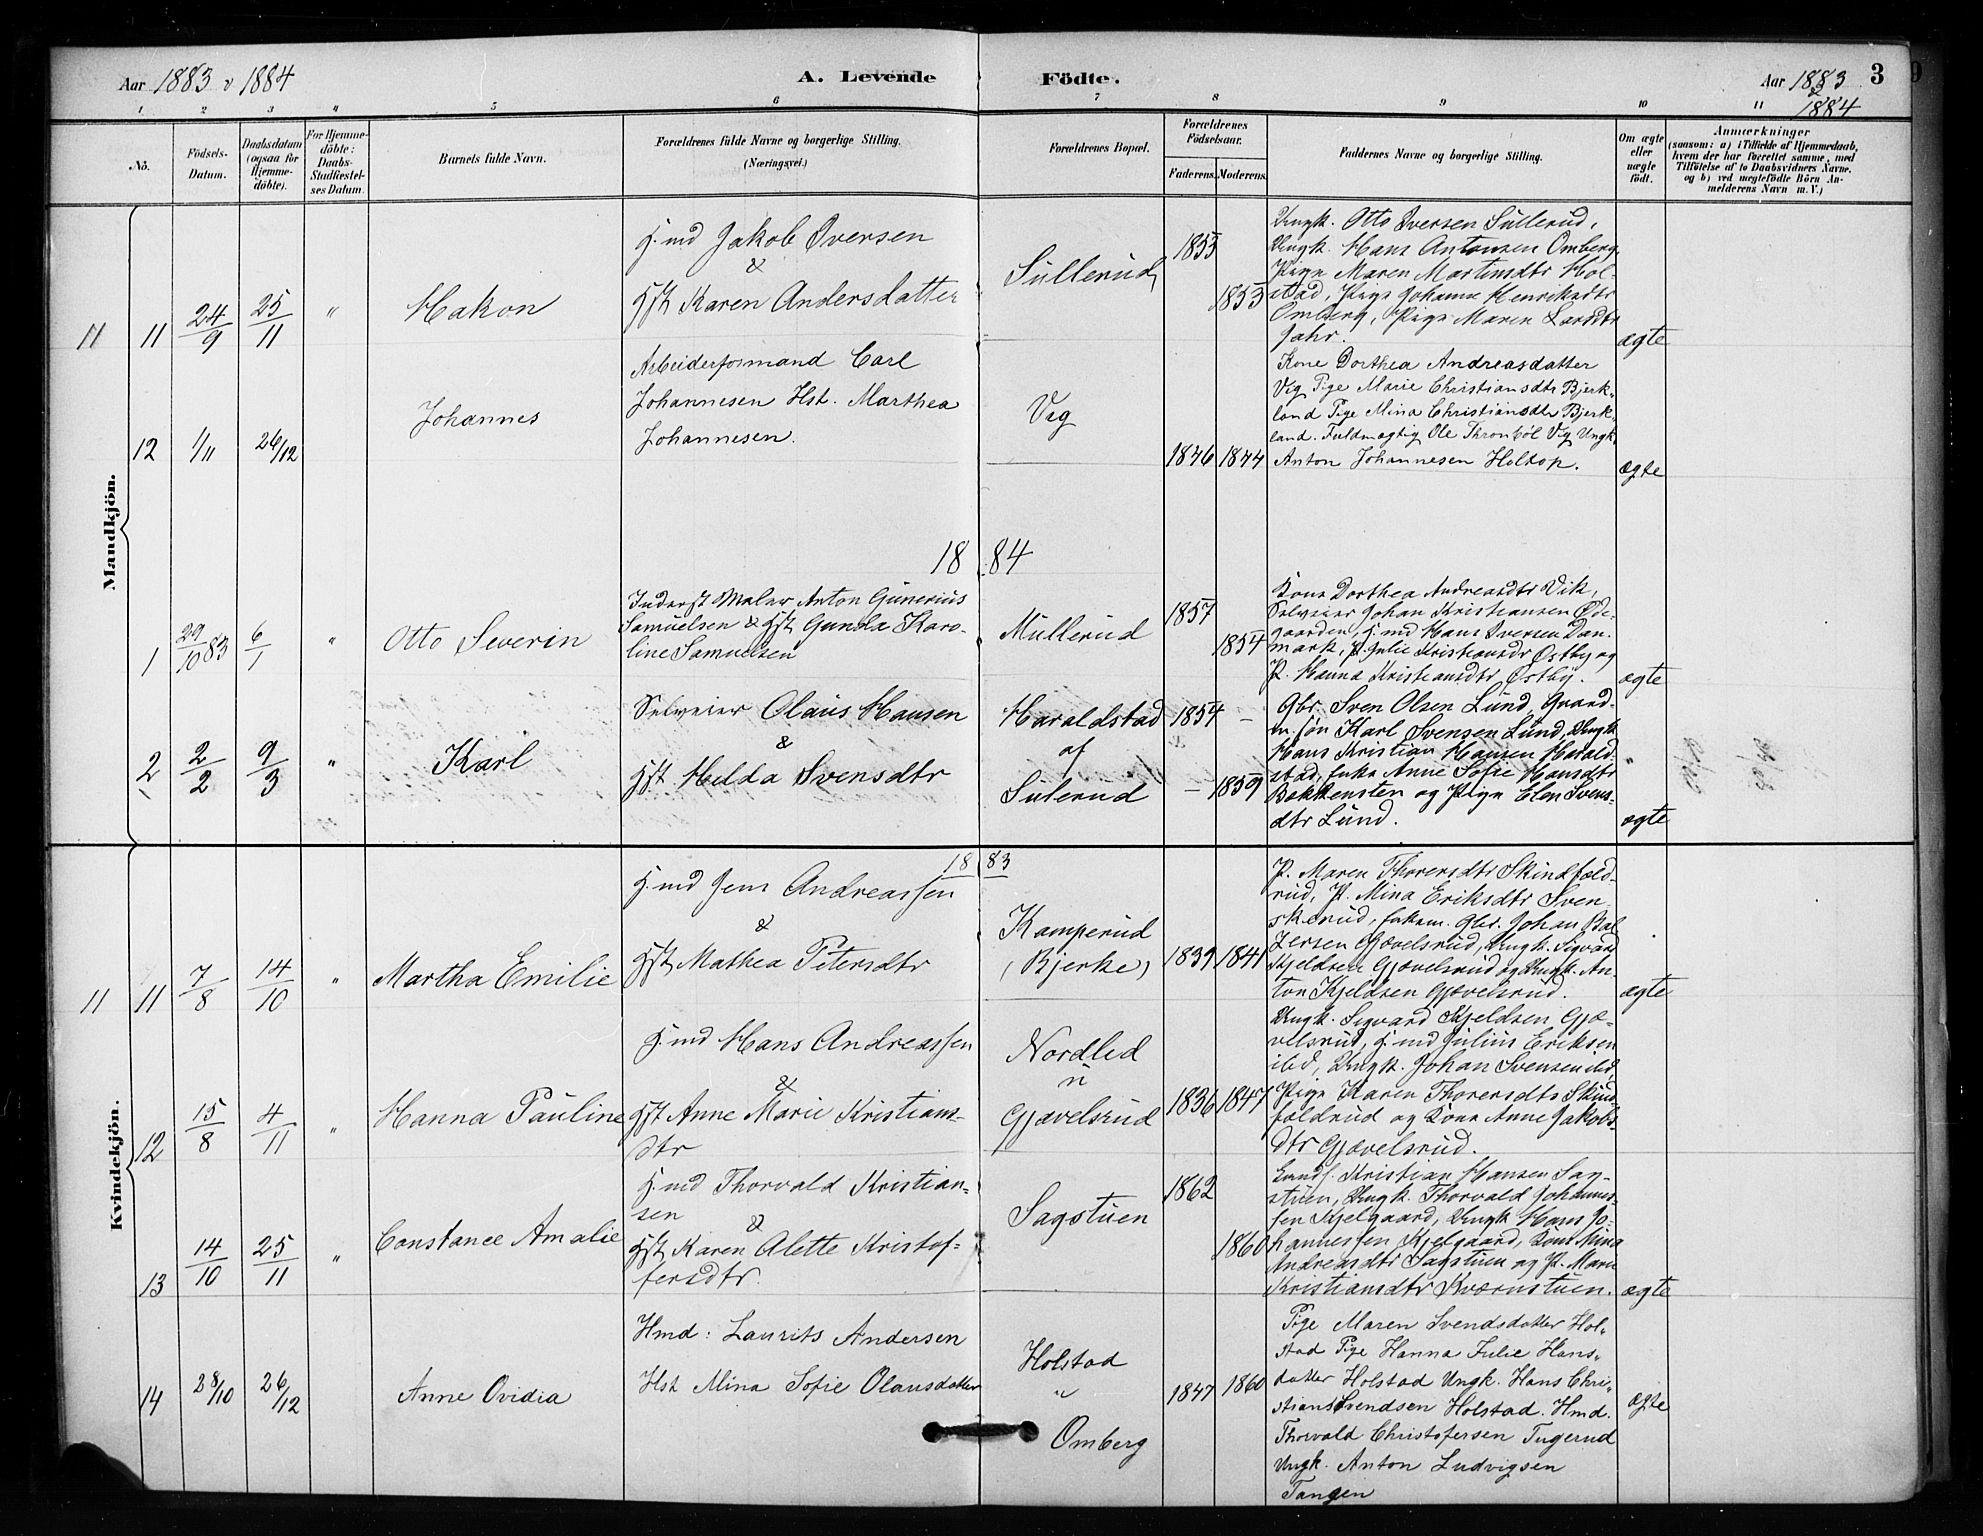 Aar 1883 & 1884
A. Levende Födte.
Aar 1883 & 1884
3
1 2 3 " 5 6 7 8 9 10 11
No.
Födsels-Datum.
Daabsdatum (ogsaa for Hjemme-döbte).
For Hjemme-döbte: Daabs-Stadfæstel-ses Datum.
Barnets fulde Navn.
Forældrenes fulde Navne og borgerlige Stilling.
(Næringsvei.)
Forældrenes Bopæl.
Forældrenes Födselsaar.
Faderens. Moderens.
Faddernes Navne og borgerlige Stilling.
Om ægte eller uægte födt.
Anmærkninger
(saasom: a) i Tilfælde af Hjemmedaab,
hvem der har forrettet samme, med
Tilföielse af to Daabsvidners Navne.
og b) ved uægtefödte Börn An-
melderens Navn m. V.)
Mandkjön.
11 11 24/9 25/11 " Hakon
Hmd Jakob Iversen
&
Hst Karen Andersdatter
Sullerud 1853 1853
Ungk. Otto Iversen Sullerud,
Ungk. Hans Antonsen Omberg,
Pige Maren Martinsdtr Hol-
stad, Pige Johanne Henriksdtr
Omberg, Pige Maren Larsdtr
Jahr.
ægte
12 1/11 26/12 Johannes
Arbeiderformand Carl
Johannesen Hst. Marthea
Johannesen.
Vig 1846 1844
Kone Dorthea Andreasdatter
Vig Pige Marie Christiansdtr Bjerk-
land Pige Mina Christiansdtr Bjerk-
land. Fuldmægtig Ole Tronböl Vig Ungk
Anton Johannesen Holtop.
ægte
1884
1 29/10 83 6/1 " Otto Severin
Inderst Maler Anton Gunerius
Samuelsen & Hst Gunda Karo-
line Samuelsen
Mullerud 1857 1854
Kone Dorthea Andreasdtr Vik,
Selveier Johan Kristiansen Öde-
gaarden, Hmd Hans Iversen Dan-
mark, P. Julie Kristiansdtr Østby og
P. Hanna Kristiansdtr Østby.
ægte
2 2/2 9/3 " Karl
Selveier Olaus Hansen
&
Hst Hilda Svensdtr
Haraldstad
af
Sulerud
1854 –
– 1859
Gbr. Sven Olsen Lund, Gaard-
m. søn Karl Svensen Lund, Ungk
Hans Kristian Hansen Harald-
stad, Enke Anne Sofie Hansdtr
Bakkensten og Pige Elen Svens-
dtr Lund.
ægte
Kvindekjön.
1883
11 11 7/8 14/10 " Martha Emilie
Hmd Jens Andreassen
&
Hst Mathea Petersdtr
Kamperud
(Bjerke) 1839 1841
P. Maren Thorersdtr Skindfæld-
rud, P. Mina Eriksdtr Sven-
skerud, Gbr. Johan Bal
zersen Gjævelsrud, Ungk. Sigvard
Kjeldsen Gjævelsrud og Ungk. An-
ton Kjeldsen Gjævelsrud.
ægte
12 15/8 4/11 " Hanna Pauline
Hmd Hans Andreassen
&
Hst Anne Marie Kristians-
dtr
Nordlid
u
Gjævelsrud 1836 1847
Ungk. Sigvard Kjeldsen Gjæ-
velsrud, Hmd Julius Eriksen
ibd, Ungk. Johan Svensen ibd,
Pige Karen Thorersdtr Skind-
fældrud og Kone Anne Jakobs-
dtr Gjævelsrud.
13 14/10 25/11 " Constance Amalie
Hmd Thorvald Kristian-
sen
&
Hst Karen Alette Kristof-
fersdtr.
Sagstuen 1862 1860
Kristian Hansen Sag-
stuen, Ungk. Thorvald Johannes-
sen Kjelgaard, Ungk Hans Jo-
hannessen Kjelgaard, Kone Mina
Andreasdtr Sagstuen og P. Marie
Kristiansdtr Kværnstuen.
ægte
14 28/10 26/12 Anne Ovidia
Hmd: Laurits Andersen
Hst Mina Sofie Olausdatter
Holstad
"
Omberg
1847 1860
Pige Maren Svendsdatter Hol-
stad Pige Hanna Julie Hans-
datter Holstad Ungk. Hans Chri-
stian Svendsen Holstad. Hmd.
Thorvald Christofersen Tugerud
Ungk. Anton Ludvigsen
Tangen
ægte